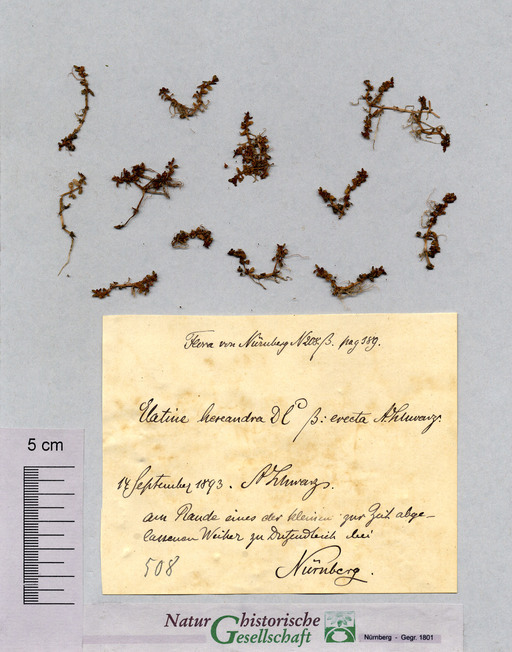 Flora von Nürnberg N 208 β. pag 389.
Elatine hexandra DC β: erecta A Schwarz.
14 September 1893. A Schwarz.
am Rande eines der kleinen zur Zeit abge-
lassenen Weiher zu Dutzendteich bei
Nürnberg.
508
5 cm
Naturhistorische
Gesellschaft
Nürnberg - Gegr. 1801